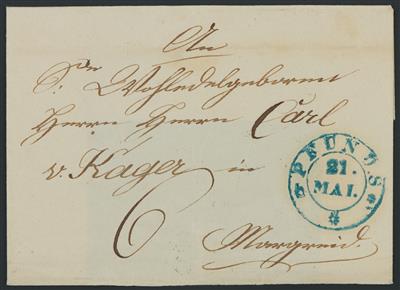 An
Sr. Wohledelgeboren
Herrn Herrn Carl
v. Kager in
6
Margreid.
PFUNDS
21.
MAI.